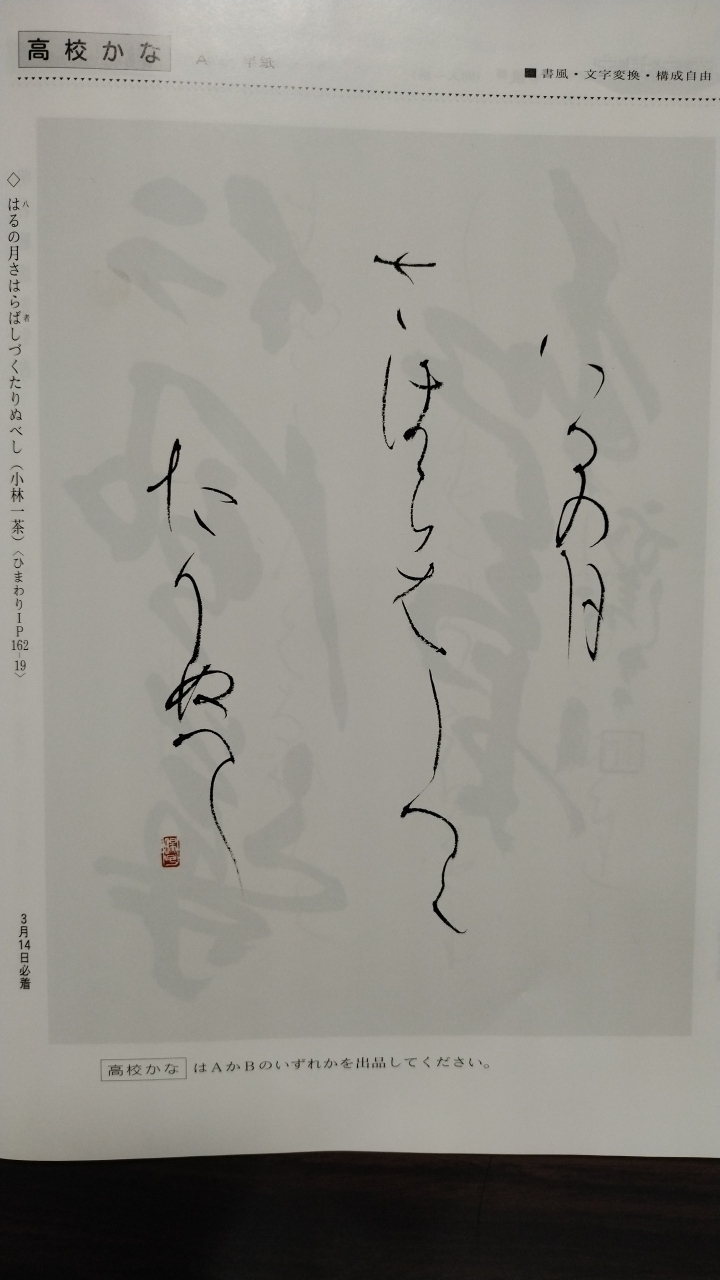 高校かな
A 半紙
■書風・文字変換・構成自由
はるの月
さはらばし
づく
たりぬべし
◇はるの月さはらばしづくたりぬべし(小林一茶)〈ひまわりⅠP162-19〉
八
者
3月14日必着
高校かな はAかBのいずれかを出品してください。